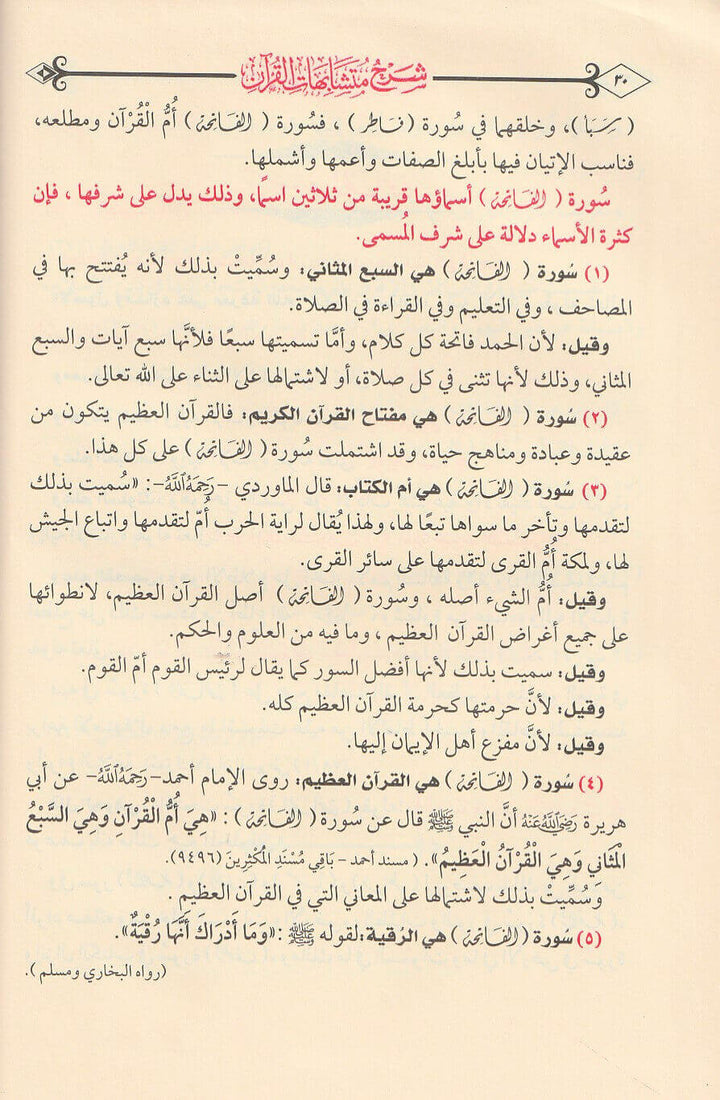 ٣٠
شرح متشابهات القرآن
(سَبَأ)، وخلقهما في سُورة (فاطر)، فسُورة (الفاتحة) أُمُّ الْقُرْآن ومطلعه،
فناسب الإتيان فيها بأبلغ الصفات وأعمها وأشملها.
سُورة (الفاتحة) أسماؤها قريبة من ثلاثين اسمًا، وذلك يدل على شرفها، فإن
كثرة الأسماء دلالة على شرف المُسمى.
(١) سُورة (الفاتحة) هي السبع المثاني: وسُمِّيتْ بذلك لأنه يُفتتح بها في
المصاحف، وفي التعليم وفي القراءة في الصلاة.
وقيل: لأن الحمد فاتحة كل كلام، وأمَّا تسميتها سبعًا فلأنَّها سبع آيات والسبع
المثاني، وذلك لأنها تثنى في كل صلاة، أو لاشتمالها على الثناء على الله تعالى.
(٢) سُورة (الفاتحة) هي مفتاح القرآن الكريم: فالقرآن العظيم يتكون من
عقيدة وعبادة ومناهج حياة، وقد اشتملت سُورة (الفاتحة) على كل هذا.
(٣) سُورة (الفاتحة) هي أم الكتاب: قال الماوردي -رَحِمَهُ اللَّهُ-: «سُميت بذلك
لتقدمها وتأخر ما سواها تبعًا لها، ولهذا يُقال لراية الحرب أُمّ لتقدمها واتباع الجيش
لها، ولمكة أُمُّ القرى لتقدمها على سائر القرى.
وقيل: أُمُّ الشيء أصله، وسُورة (الفاتحة) أصل القرآن العظيم، لانطوائها
على جميع أغراض القرآن العظيم، وما فيه من العلوم والحكم.
وقيل: سميت بذلك لأنها أفضل السور كما يقال لرئيس القوم أمّ القوم.
وقيل: لأنَّ حرمتها كحرمة القرآن العظيم كله.
وقيل: لأنَّ مفزع أهل الإيمان إليها.
(٤) سُورة (الفاتحة) هي القرآن العظيم: روى الإمام أحمد-رَحِمَهُ اللَّهُ- عن أبي
هريرة رَضِيَ اللَّهُ عَنْهُ أنَّ النبي ﷺ قال عن سُورة (الفاتحة): «هِيَ أُمُّ الْقُرْآنِ وَهِيَ السَّبْعُ
الْمَثَاني وَهِيَ الْقُرْآنُ الْعَظِيمُ». (مسند أحمد - بَاقِي مُسْنَدِ المُكْثِرِينَ (٩٤٩٦).
وَسُمِّيَتْ بذلك لاشتمالها على المعاني التي في القرآن العظيم.
(٥) سُورة (الفاتحة) هي الرُقية: لقوله ﷺ: «وَمَا أَدْرَاكَ أَنَّهَا رُقْيَةٌ».
(رواه البخاري ومسلم).